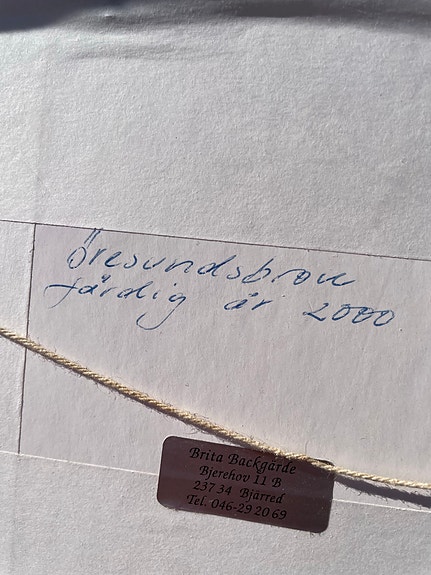 Öresundsbron
färdig år 2000
Brita Backgärde
Bjerehov 11 B
237 34 Bjärred
Tel. 046-29 20 69